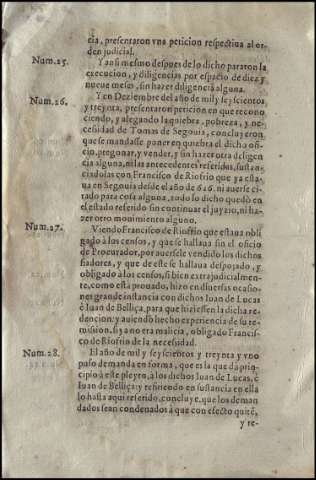 cia, presentaron vna peticion respectiua al or-
den judicial.
Num.25.
Y ansi mesmo despues de lo dicho pararon la
execucion, y diligencias por espacio de diez y
nueue meses, sin hazer diligencia alguna.
Num.26.
Y en Deziembre del año de mil y seyscientos
y treynta, presentaron peticion en que recono
ciendo, y alegando la quiebra, pobreza, y ne-
cessidad de Tomas de Segouia, concluyeron
que se mandasse poner en quiebra el dicho ofi-
cio, pregonar, y vender, y sin hazer otra diligen
cia alguna, ni las antecedentes referidas, sustan
ciadolas con Francisco de Riofrio que ya esta-
ua en Segouia desde el año de 626. ni auerse ci-
tado para cosa alguna, todo lo dicho quedò en
el estado referido sin continuar el juyzio, ni ha-
zer otro mouimiento alguno.
Num.27.
Viendo Francisco de Riofrio que estaua obli
gado à los censos, y que se hallaua sin el oficio
de Procurador, por auersele vendido los dichos
fiadores, y que de este se hallaua despojado, y
obligado à los censos, si bien extrajudicialmen-
te, como està prouado, hizo en diuersas ocasio-
nes grande instancia con dichos Iuan de Lucas
è Iuan de Belliça, para que hiziessen la dicha re-
dencion: y auiendo hecho experiencia de su re-
mission, si ya no era malicia, obligado Francis-
co de Riofrio de la necessidad.
Num.28.
El año de mil y seyscientos y treynta y vno
puso demanda en forma, que es la que da princi-
pio à este pleyto, à los dichos Iuan de Lucas, è
Iuan de Belliça y refiriendo en sustancia en ella
lo hasta aqui referido, concluye, que los deman
dados sean condenados à que con efecto quitē,
y re-